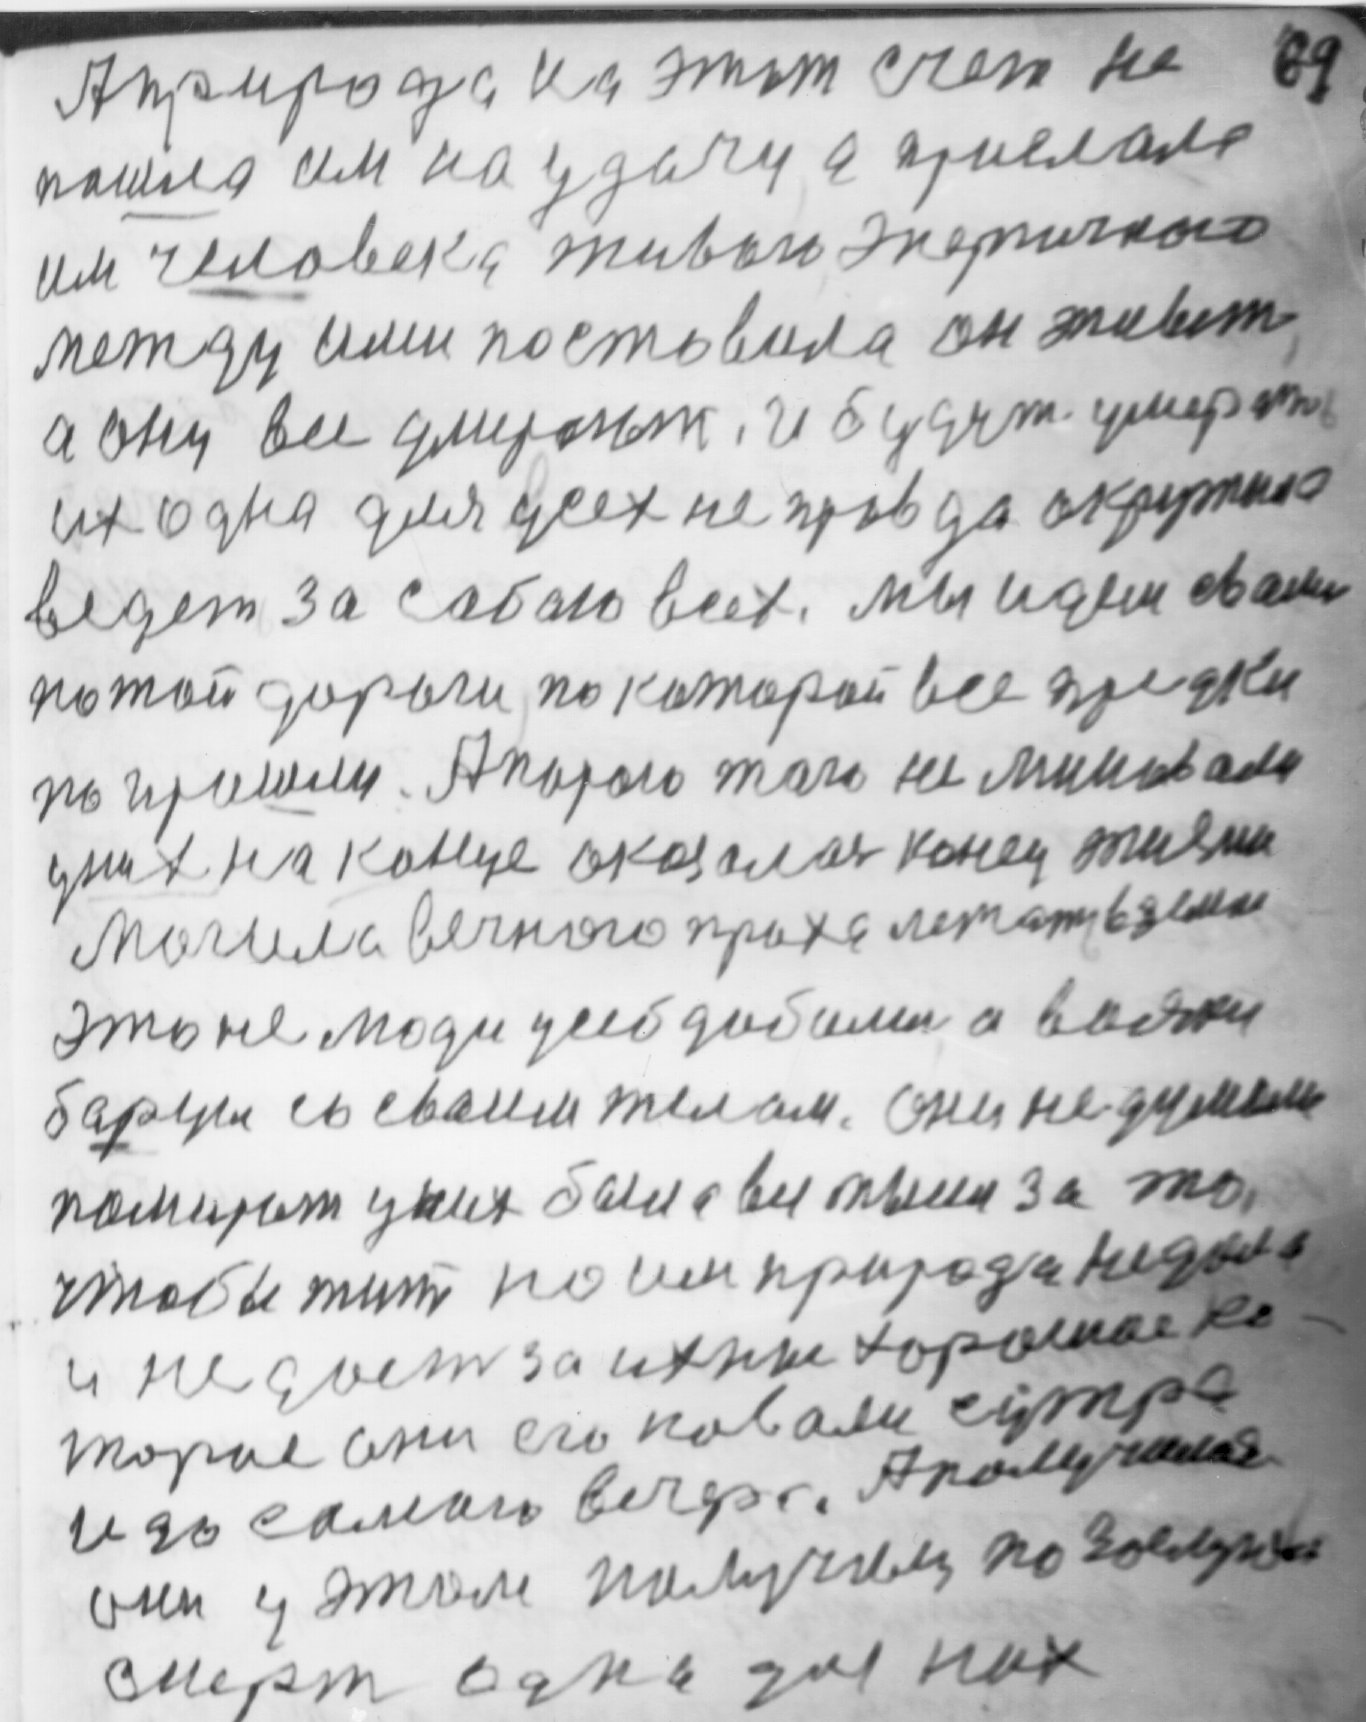 69
А природа на этот счет не
пошла им на удачу а прислала
им человека живого энергичного
между ими поставила он живет,
а они все умирают. и будут умерать
их одна для усех неправда окружила
ведет за сабою всех. мы идем свами
по той дороги, по каторой все предки
по прошли. А порою таго не миновали
у них на конце оказалась конец жизни
Могила вечного праха лежать в земли
Это не люди усеб добыли а
барцы со сваим телам. Они не думали
помирать у них была
чтобы жить но им природа недала
и не дает за ихнее хорошее ко-
торое они его ковали сутра
и до самого вечера. А получилось
они у этом получили по заслугам
смерт одна для них